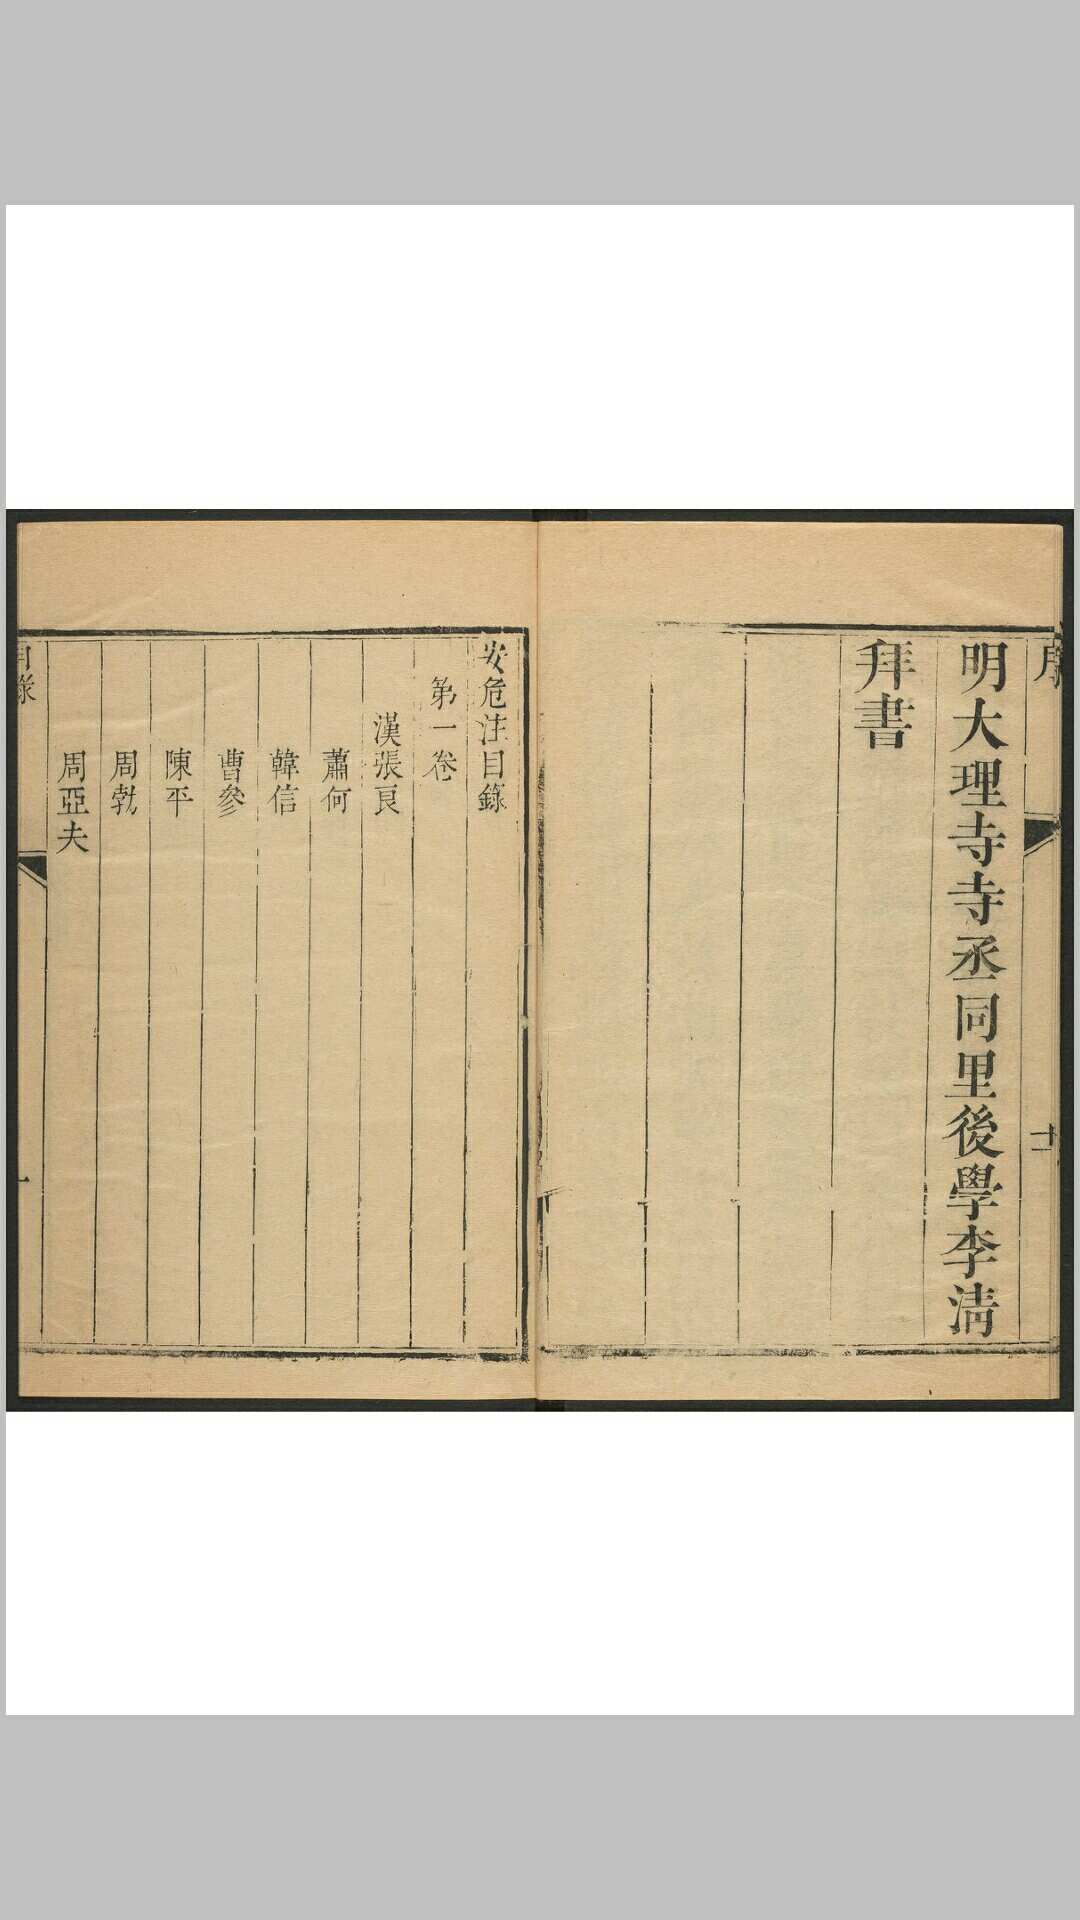 序
十二
明大理寺寺丞同里後學李清
拜書
安危注目錄
第一卷
漢張良
蕭何
韓信
曹參
陳平
周勃
周亞夫
目錄
一